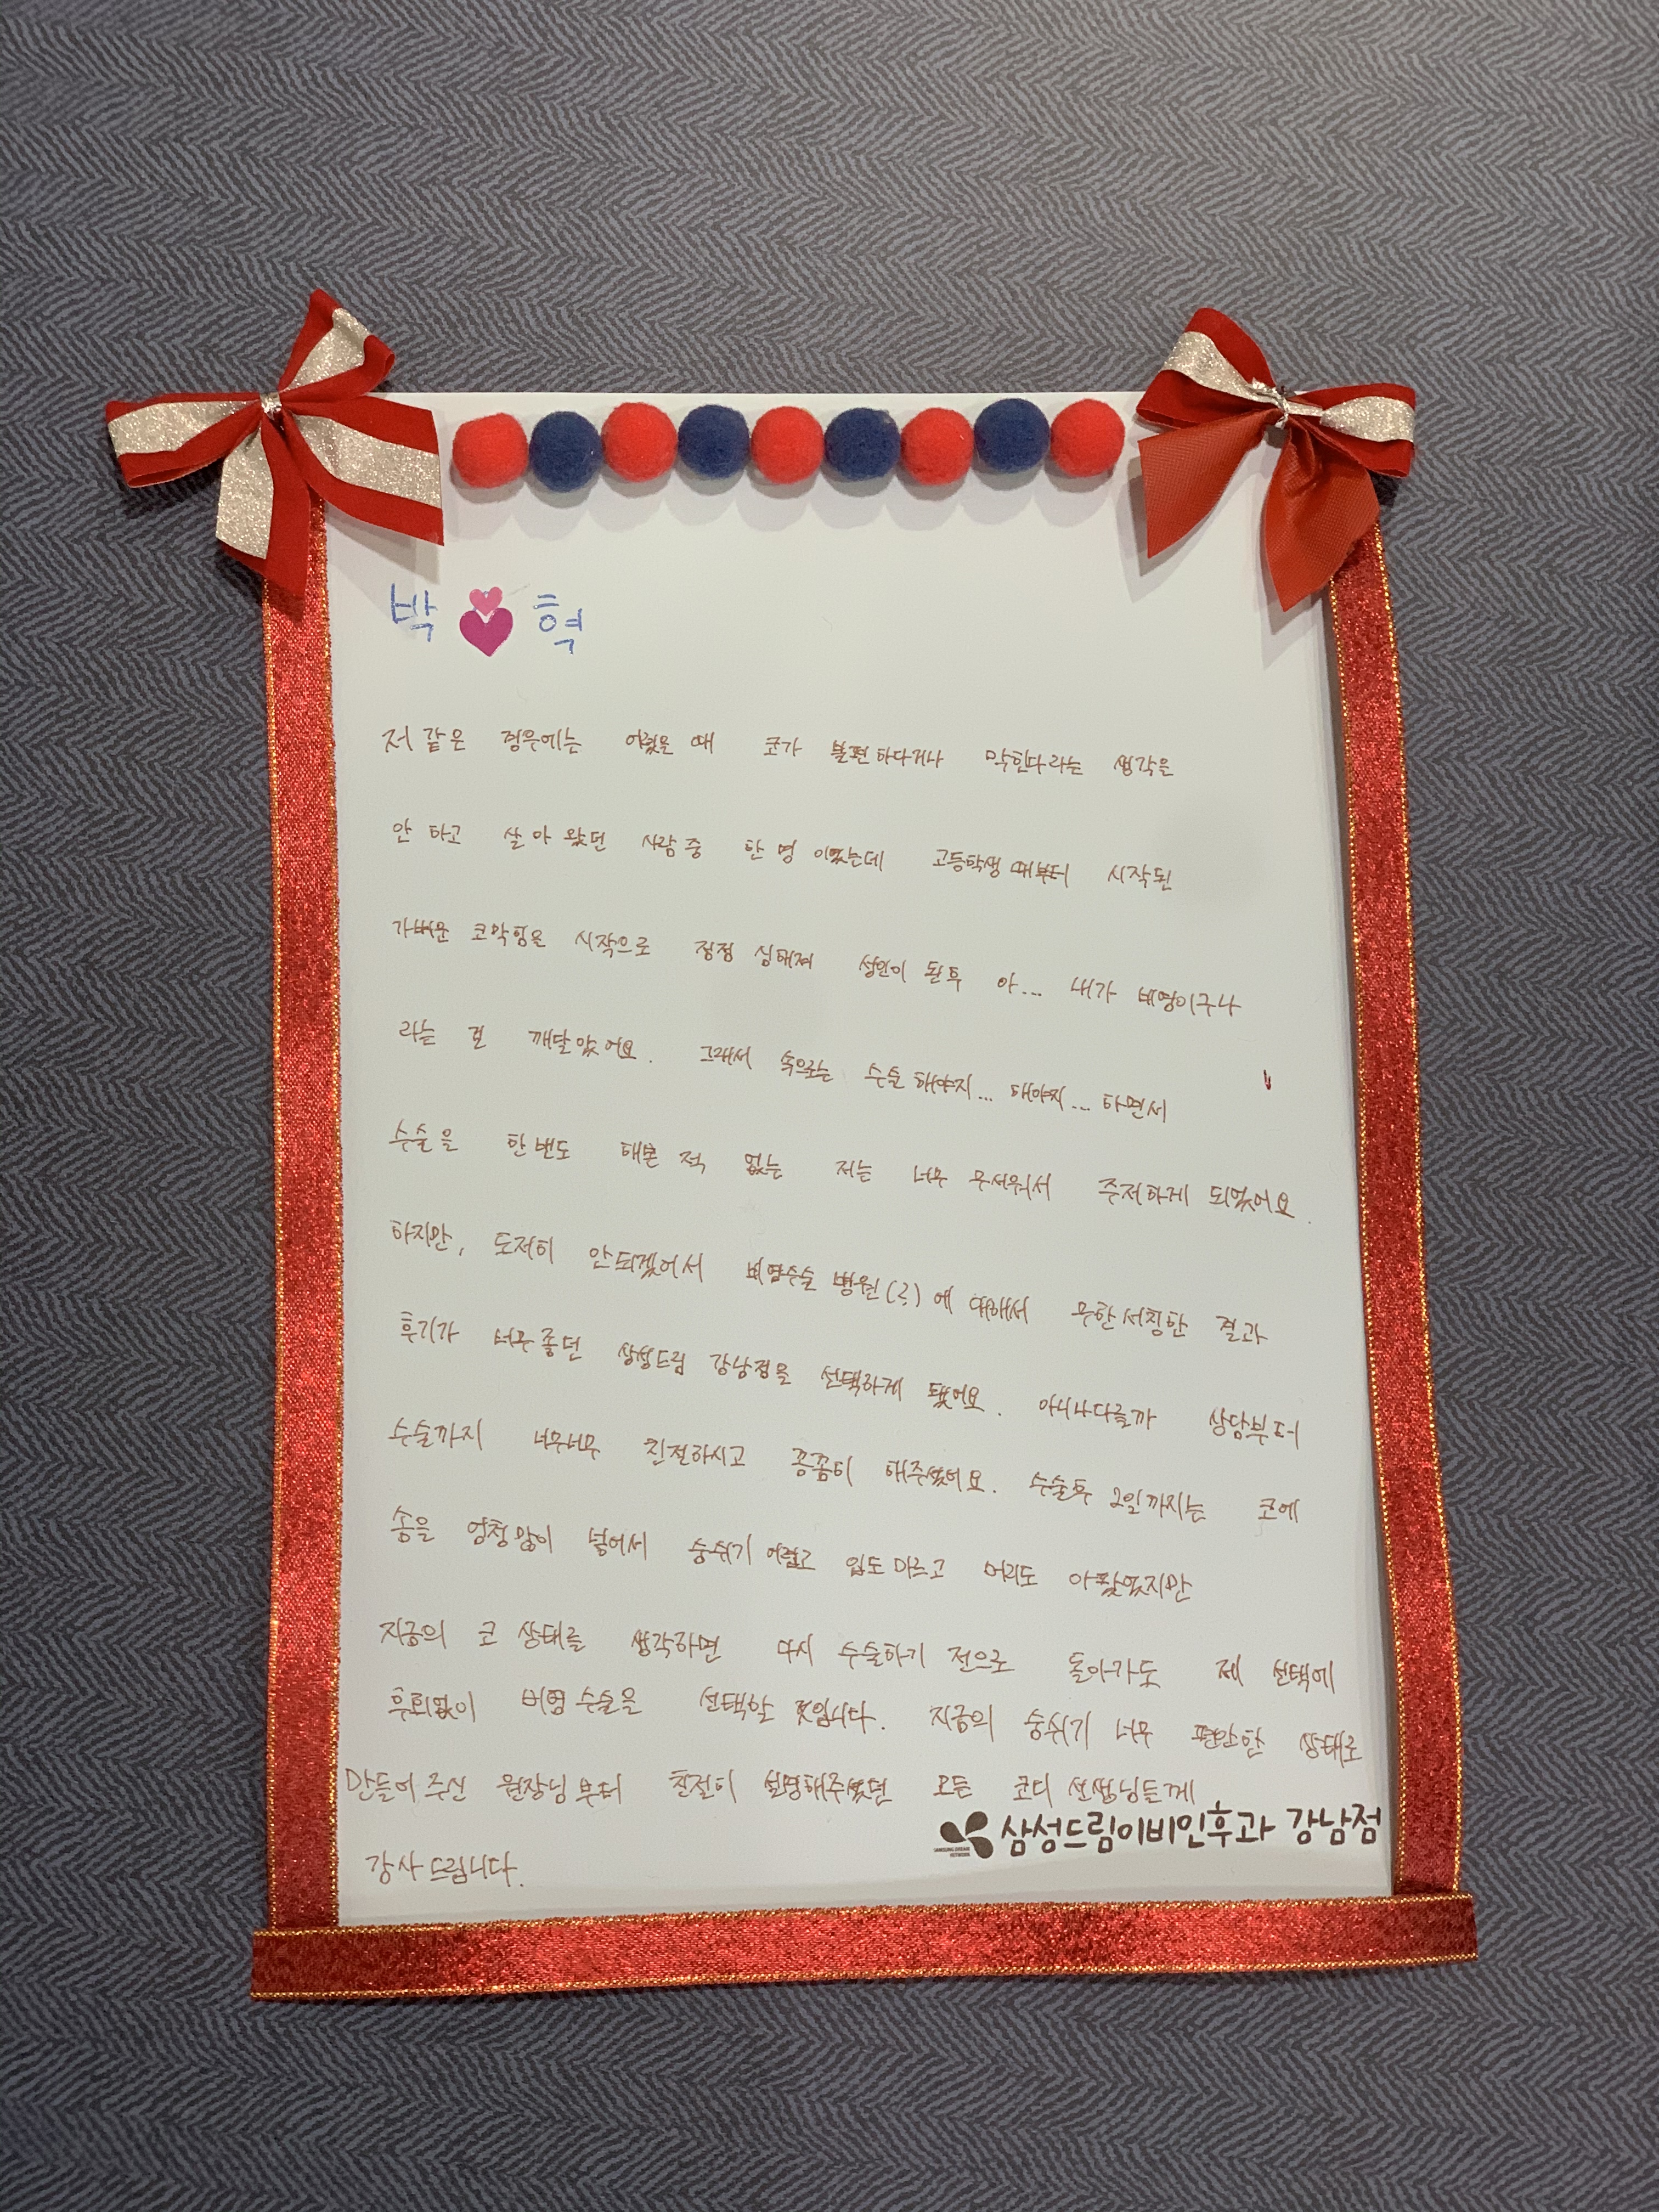 박 혁
저 같은 경우에는 어렸을 때 코가 불편하다거나 막힌다라는 생각을
안 하고 살아 왔던 사람 중 한 명 이었는데 고등학생 때부터 시작된
가벼운 코막힘을 시작으로 점점 심해져 성인이 된 후 아... 내가 비염이구나
라는 걸 깨달았어요. 그래서 속으로는 수술 해야지... 해야지... 하면서
수술을 한번도 해본 적 없는 저는 너무 무서워서 주저하게 되었어요.
하지만, 도저히 안되겠어서 비염수술 병원(?)에 대해서 무한서칭한 결과
후기가 너무 좋던 삼성드림 강남점을 선택하게 됐어요. 아니나다를까 상담부터
수술까지 너무너무 친절하시고 꼼꼼히 해주셨어요. 수술후 2일까지는 코에
솜을 엄청 많이 넣어서 숨쉬기 어렵고 입도 마르고 머리도 아팠었지만
지금의 코 상태를 생각하면 다시 수술하기 전으로 돌아가도 제 선택에
후회없이 비염 수술을 선택할 것입니다. 지금의 숨쉬기 너무 편안한 상태로
만들어 주신 원장님부터 친절히 설명해주셨던 모든 코디 선생님들께
감사 드립니다.
SAMSUNG DREAM NETWORK 삼성드림이비인후과 강남점